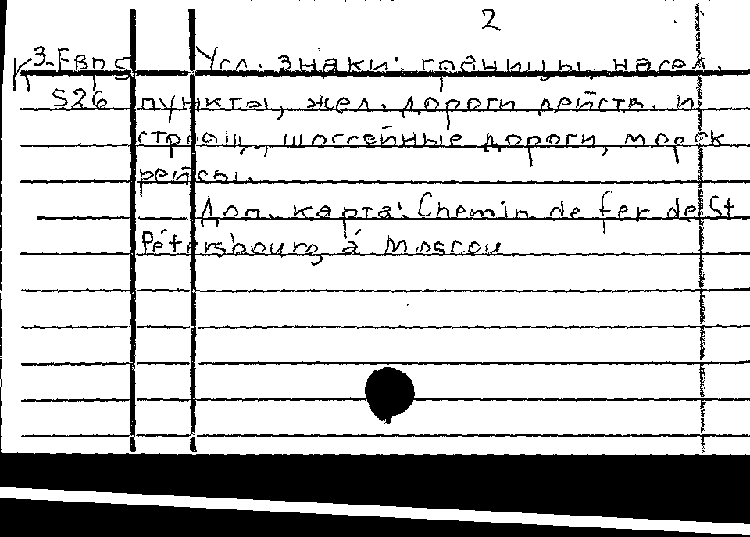 2
К 3-Евр 5 Усл. знаки: границы, насел.
526 пункты, жел. дороги действ. и
строящ., шоссейные дороги, морск
рейсы.
Доп. карта: Chemin de fer de St
Pétersbourg á Moscou